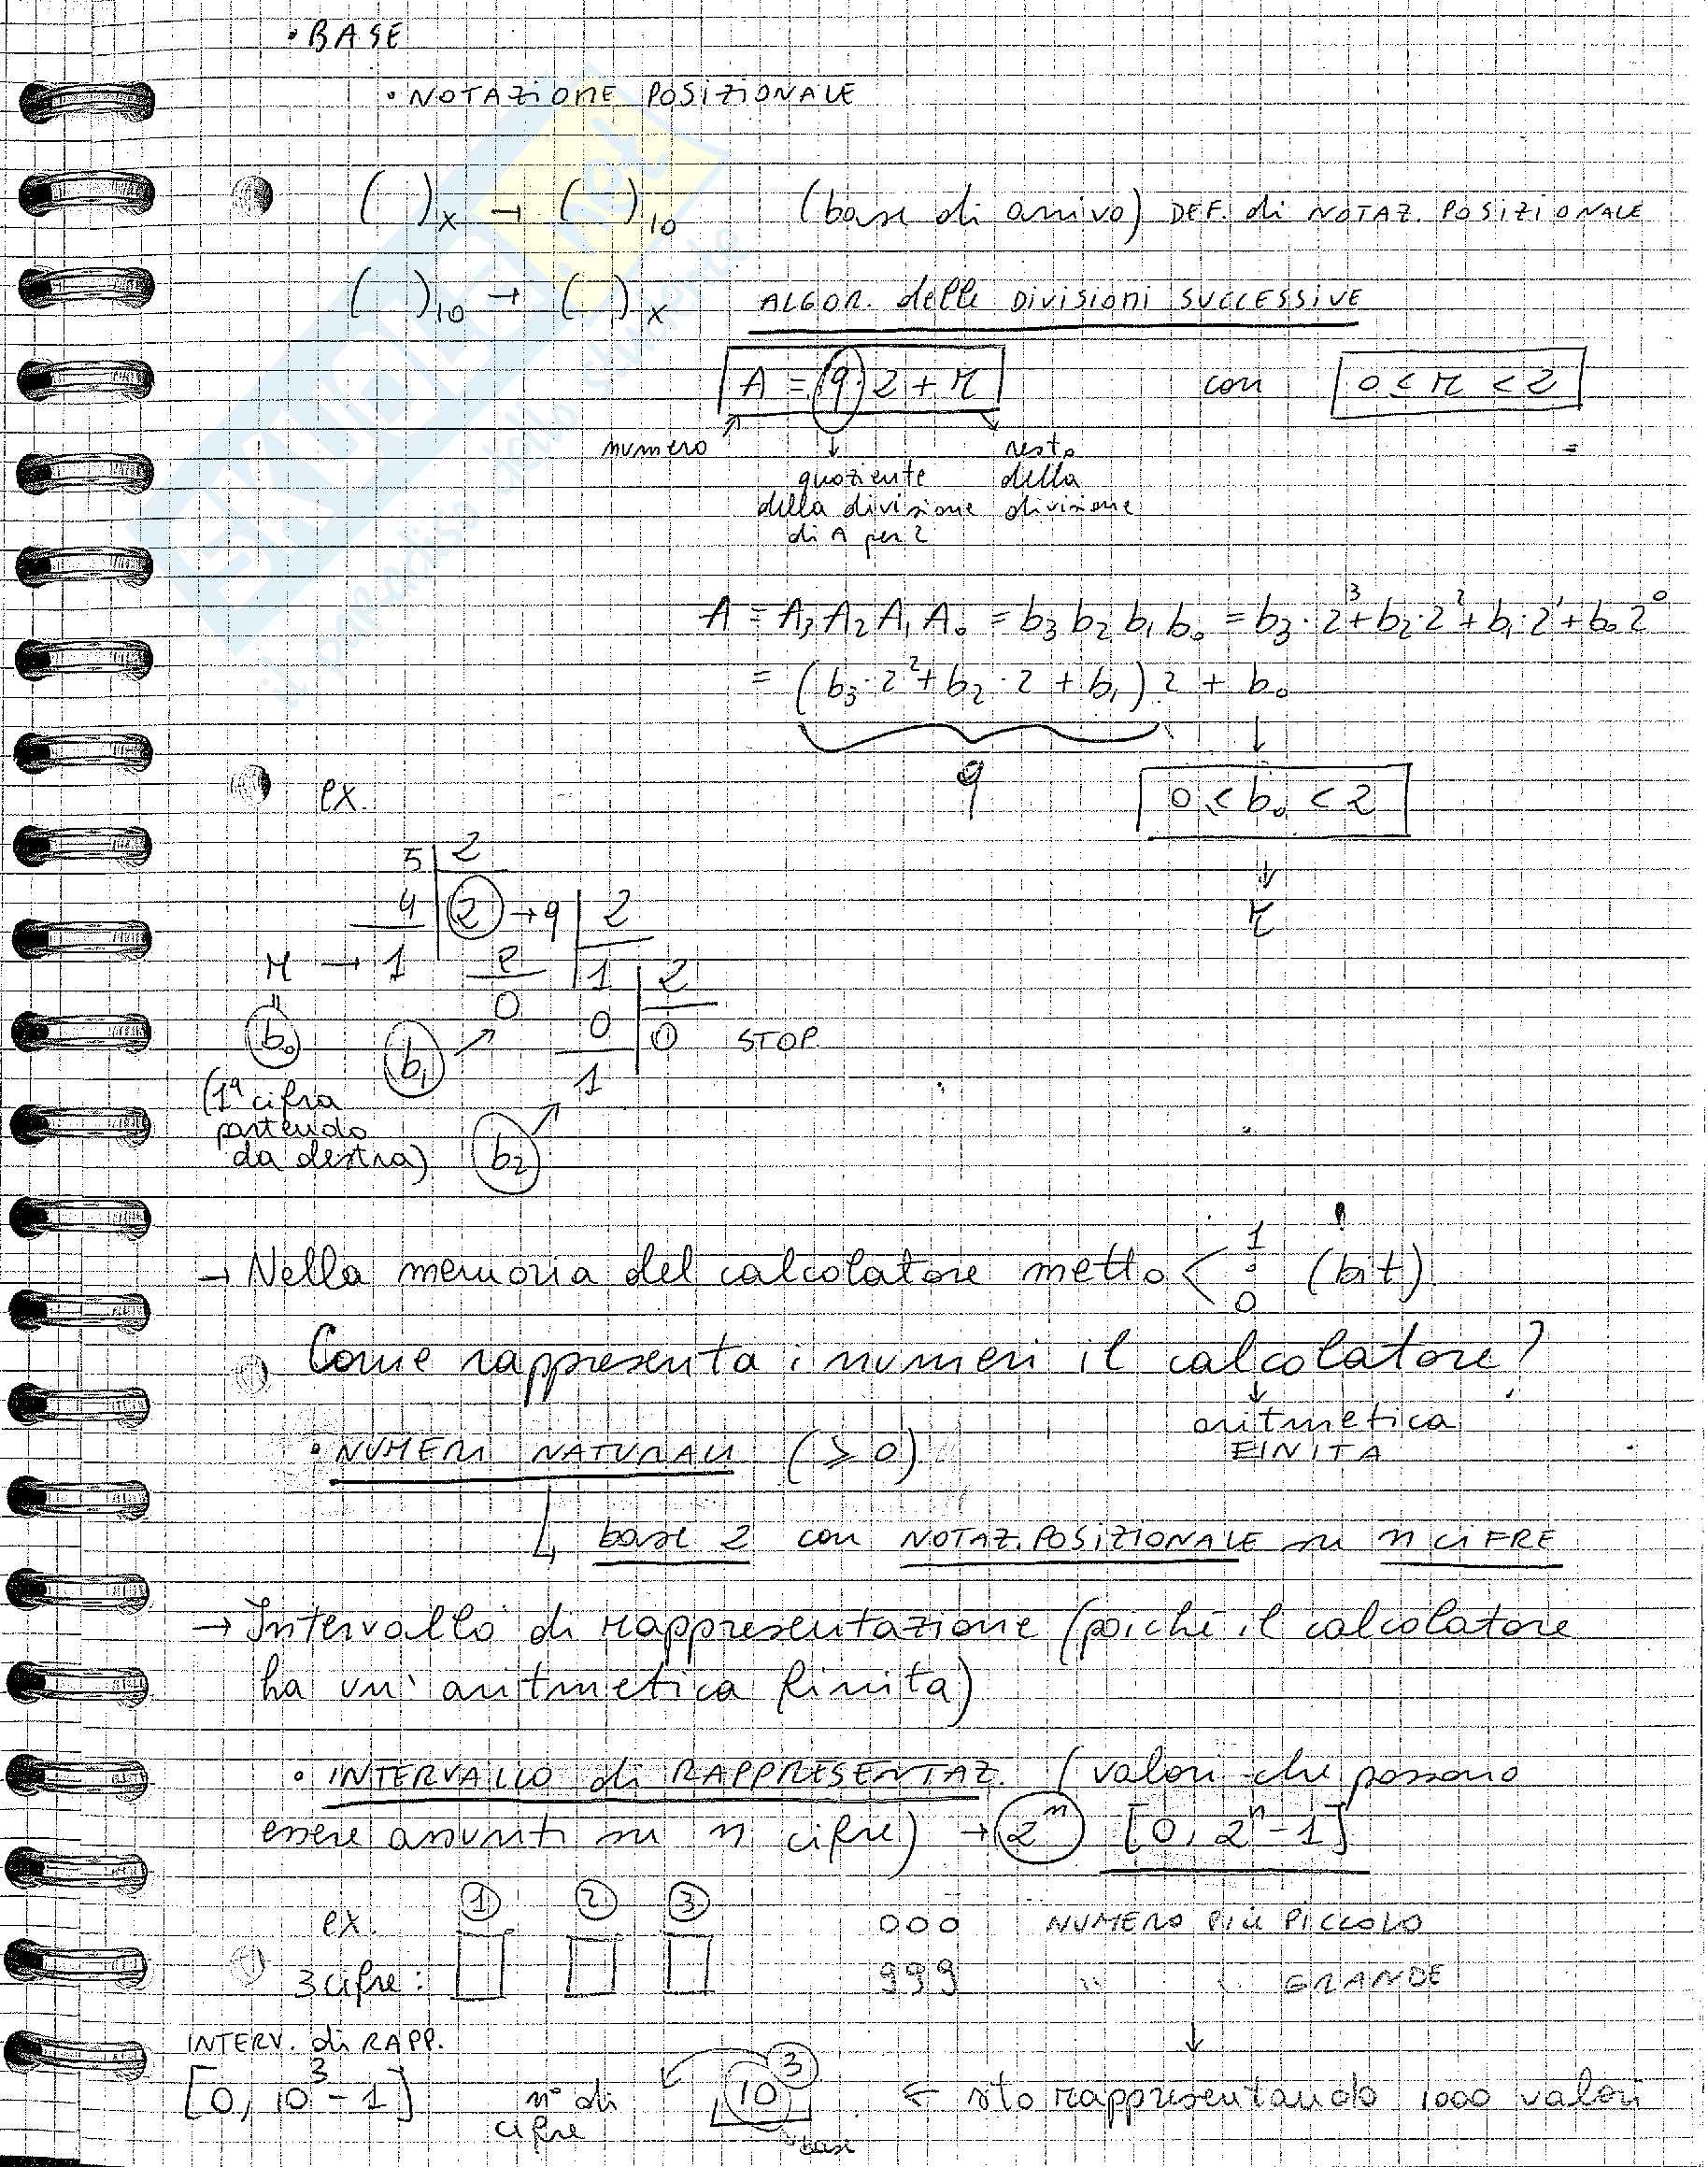 • BASE
• NOTAZIONE POSIZIONALE
( )x → ( )10 (base di arrivo) DEF. di NOTAZ. POSIZIONALE
( )10 → ( )x ALGOR. delle DIVISIONI SUCCESSIVE
A = q · 2 + r con 0 ≤ r < 2
numero quoziente della divisione di A per 2
resto della divisione
A = A3 A2 A1 A0 = b3 b2 b1 b0 = b3 · 2³ + b2 · 2² + b1 · 2¹ + b0 2⁰
= (b3 · 2² + b2 · 2 + b1) 2 + b0
q
0 < b0 < 2
r
ex.
5 2
4 2 → q 2
r → 1 2 1 2
0 0 0 STOP
1
b0 b1 b2
(1ª cifra
partendo
da destra)
→ Nella memoria del calcolatore metto < 1 0 (bit)
Come rappresenta i numeri il calcolatore?
aritmetica
FINITA
• NUMERI NATURALI (≥ 0)
↳ base 2 con NOTAZ. POSIZIONALE su n CIFRE
→ Intervallo di rappresentazione (poiché il calcolatore
ha un' aritmetica finita)
• INTERVALLO di RAPPRESENTAZ. (valori che possono
essere assunti su n cifre) → 2ⁿ [0, 2ⁿ - 1]
ex. 1 2 3 000 NUMERO PIÙ PICCOLO
3 cifre: 999 " " GRANDE
INTERV. di RAPP.
[0, 10³ - 1] n° di cifre 10³ ← sto rappresentando 1000 valori
base
SKUOLA.net
il paradiso dello studente